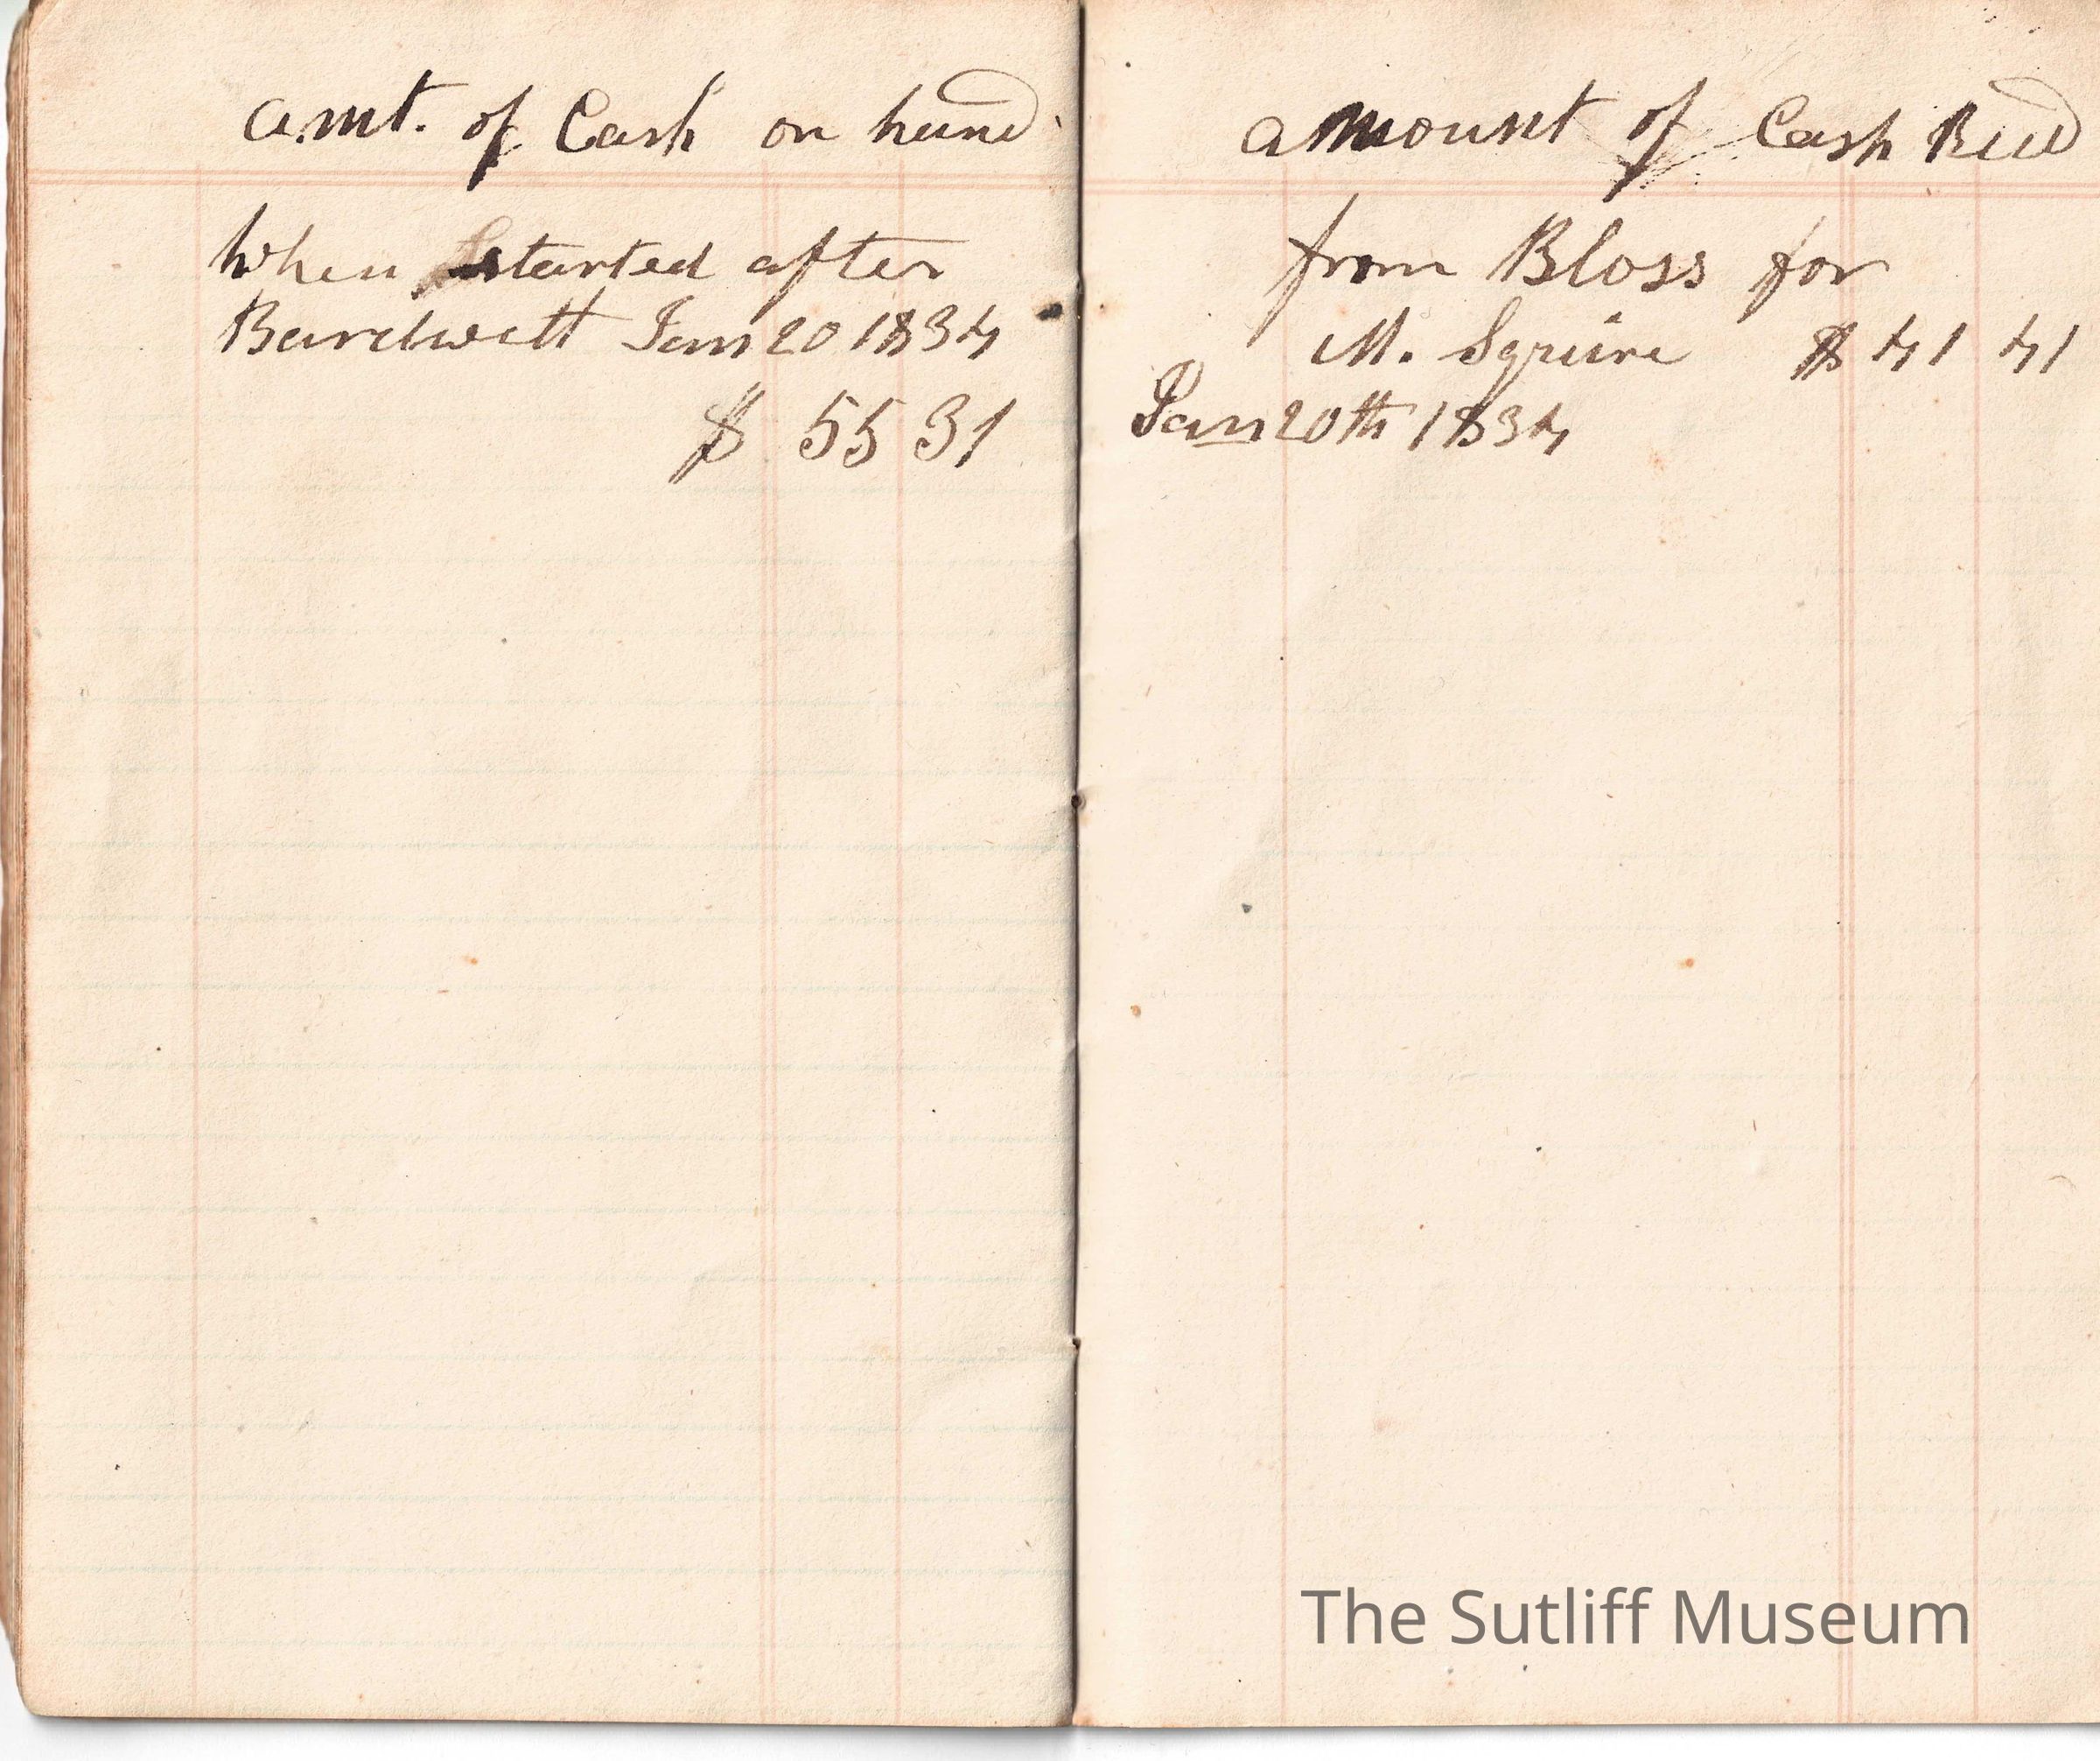 amt. of Cash on hand
when started after
Bardwell Jan 20 1834
$ 55 31
amount of Cash Recd
from Bloss for
M. Squire $ 41 41
Jan 20th 1834
The Sutliff Museum